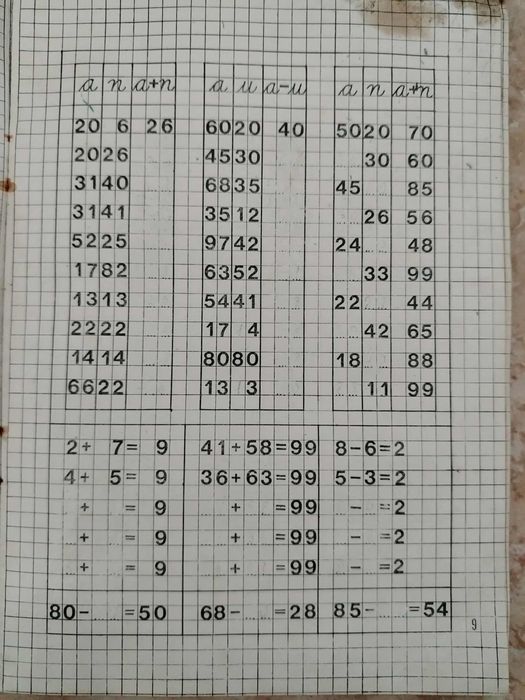 a п a+п a и a-и a п a+п
20 6 26 60 20 40 50 20 70
20 26 ...... 45 30 ...... ...... 30 60
31 40 ...... 68 35 ...... 45 ...... 85
31 41 ...... 35 12 ...... ...... 26 56
52 25 ...... 97 42 ...... 24 ...... 48
17 82 ...... 63 52 ...... ...... 33 99
13 13 ...... 54 41 ...... 22 ...... 44
22 22 ...... 17 4 ...... ...... 42 65
14 14 ...... 80 80 ...... 18 ...... 88
66 22 ...... 13 3 ...... ...... 11 99
2 + 7 = 9 41 + 58 = 99 8 - 6 = 2
4 + 5 = 9 36 + 63 = 99 5 - 3 = 2
... + ... = 9 ... + ... = 99 ... - ... = 2
... + ... = 9 ... + ... = 99 ... - ... = 2
... + ... = 9 ... + ... = 99 ... - ... = 2
80 - ...... = 50 68 - ...... = 28 85 - ...... = 54
9